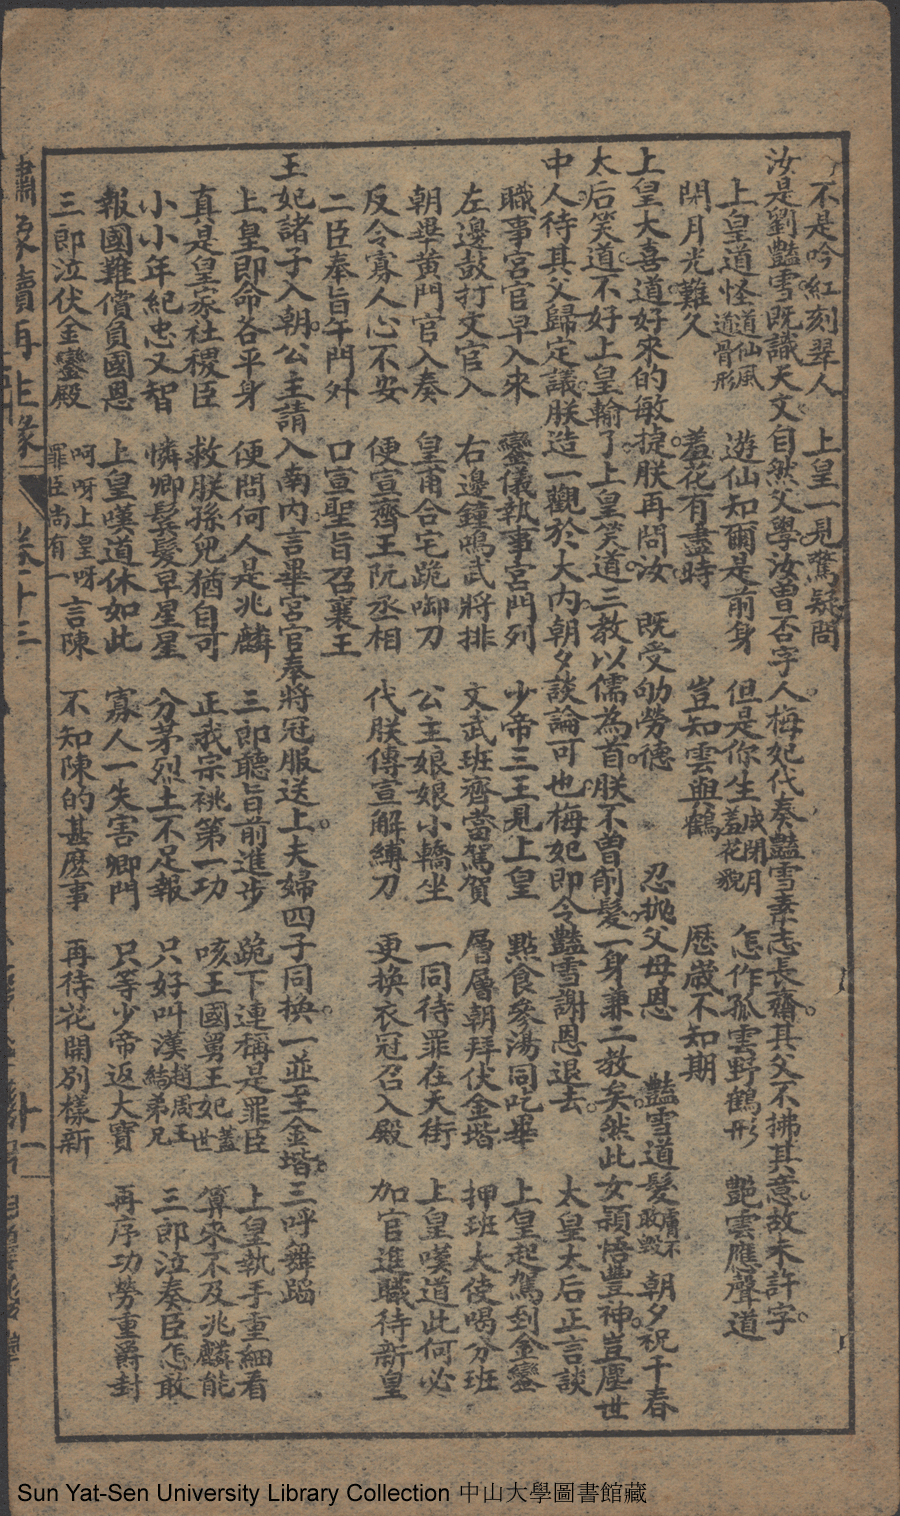 不是吟紅刻翠人　上皇一見驚疑問
汝是劉豔雪既識天文自然父學汝曾否字人梅妃代奏豔雪素志長齋其父不拂其意故未許字
上皇道怪道仙風道骨形　遊仙知爾是前身　但是你生成閉月羞花貌　怎作孤雲野鶴形　豔雲應聲道
閉月光難久　羞花有盡時　豈知雲與鶴　歷歲不知期
上皇大喜道好來的敏捷朕再問汝　既受劬勞德　忍拋父母恩　豔雪道髮膚不敢毀　朝夕祝千春
太后笑道不好上皇輸了上皇笑道三教以儒為首朕不曾削髮一身兼二教矣然此女穎悟豐神豈塵世
中人待其父歸定議朕造一觀於大內朝夕談論可也梅妃即令豔雪謝恩退去　太皇太后正言談
職事宮官早入來　鑾儀執事宮門列　少帝三王見上皇　點食參湯同吃畢　上皇起駕到金鑾
左邊鼓打文官入　右邊鐘鳴武將排　文武班齊當駕賀　層層朝拜伏金堦　押班大使喝分班
朝畢黃門官入奏　皇甫合宅跪啣刀　公主娘娘小轎坐　一同待罪在天街　上皇嘆道此何必
反令寡人心不安　便宣齊王阮丞相　代朕傳宣解縛刀　更換衣冠召入殿　加官進職待新皇
二臣奉旨午門外　口宣聖旨召襄王
王妃諸子入朝公主請入南內言畢宮官奉將冠服送上夫婦四子同換一並至金堦三呼舞蹈
上皇即命各平身　便問何人是兆麟　三郎聽旨前進步　跪下連稱是罪臣　上皇執手重細看
真是皇家社稷臣　救朕孫兒猶自可　正我宗祧第一功　咳王國舅王妃蓋世　算來不及兆麟能
小小年紀忠又智　憐卿鬂髮早星星　分茅烈土不足報　只好叫漢趙周王結弟兄　三郎泣奏臣怎敢
報國難償負國恩　上皇嘆道休如此　寡人一失害卿門　只等少帝返大寶　再序功勞重爵封
三郎泣伏金鑾殿　呵呀上皇呀罪臣尚有一言陳　不知陳的甚麼事　再待花開別樣新
繡像續再生緣　卷十三　十一
Sun Yat-Sen University Library Collection 中山大學圖書館藏